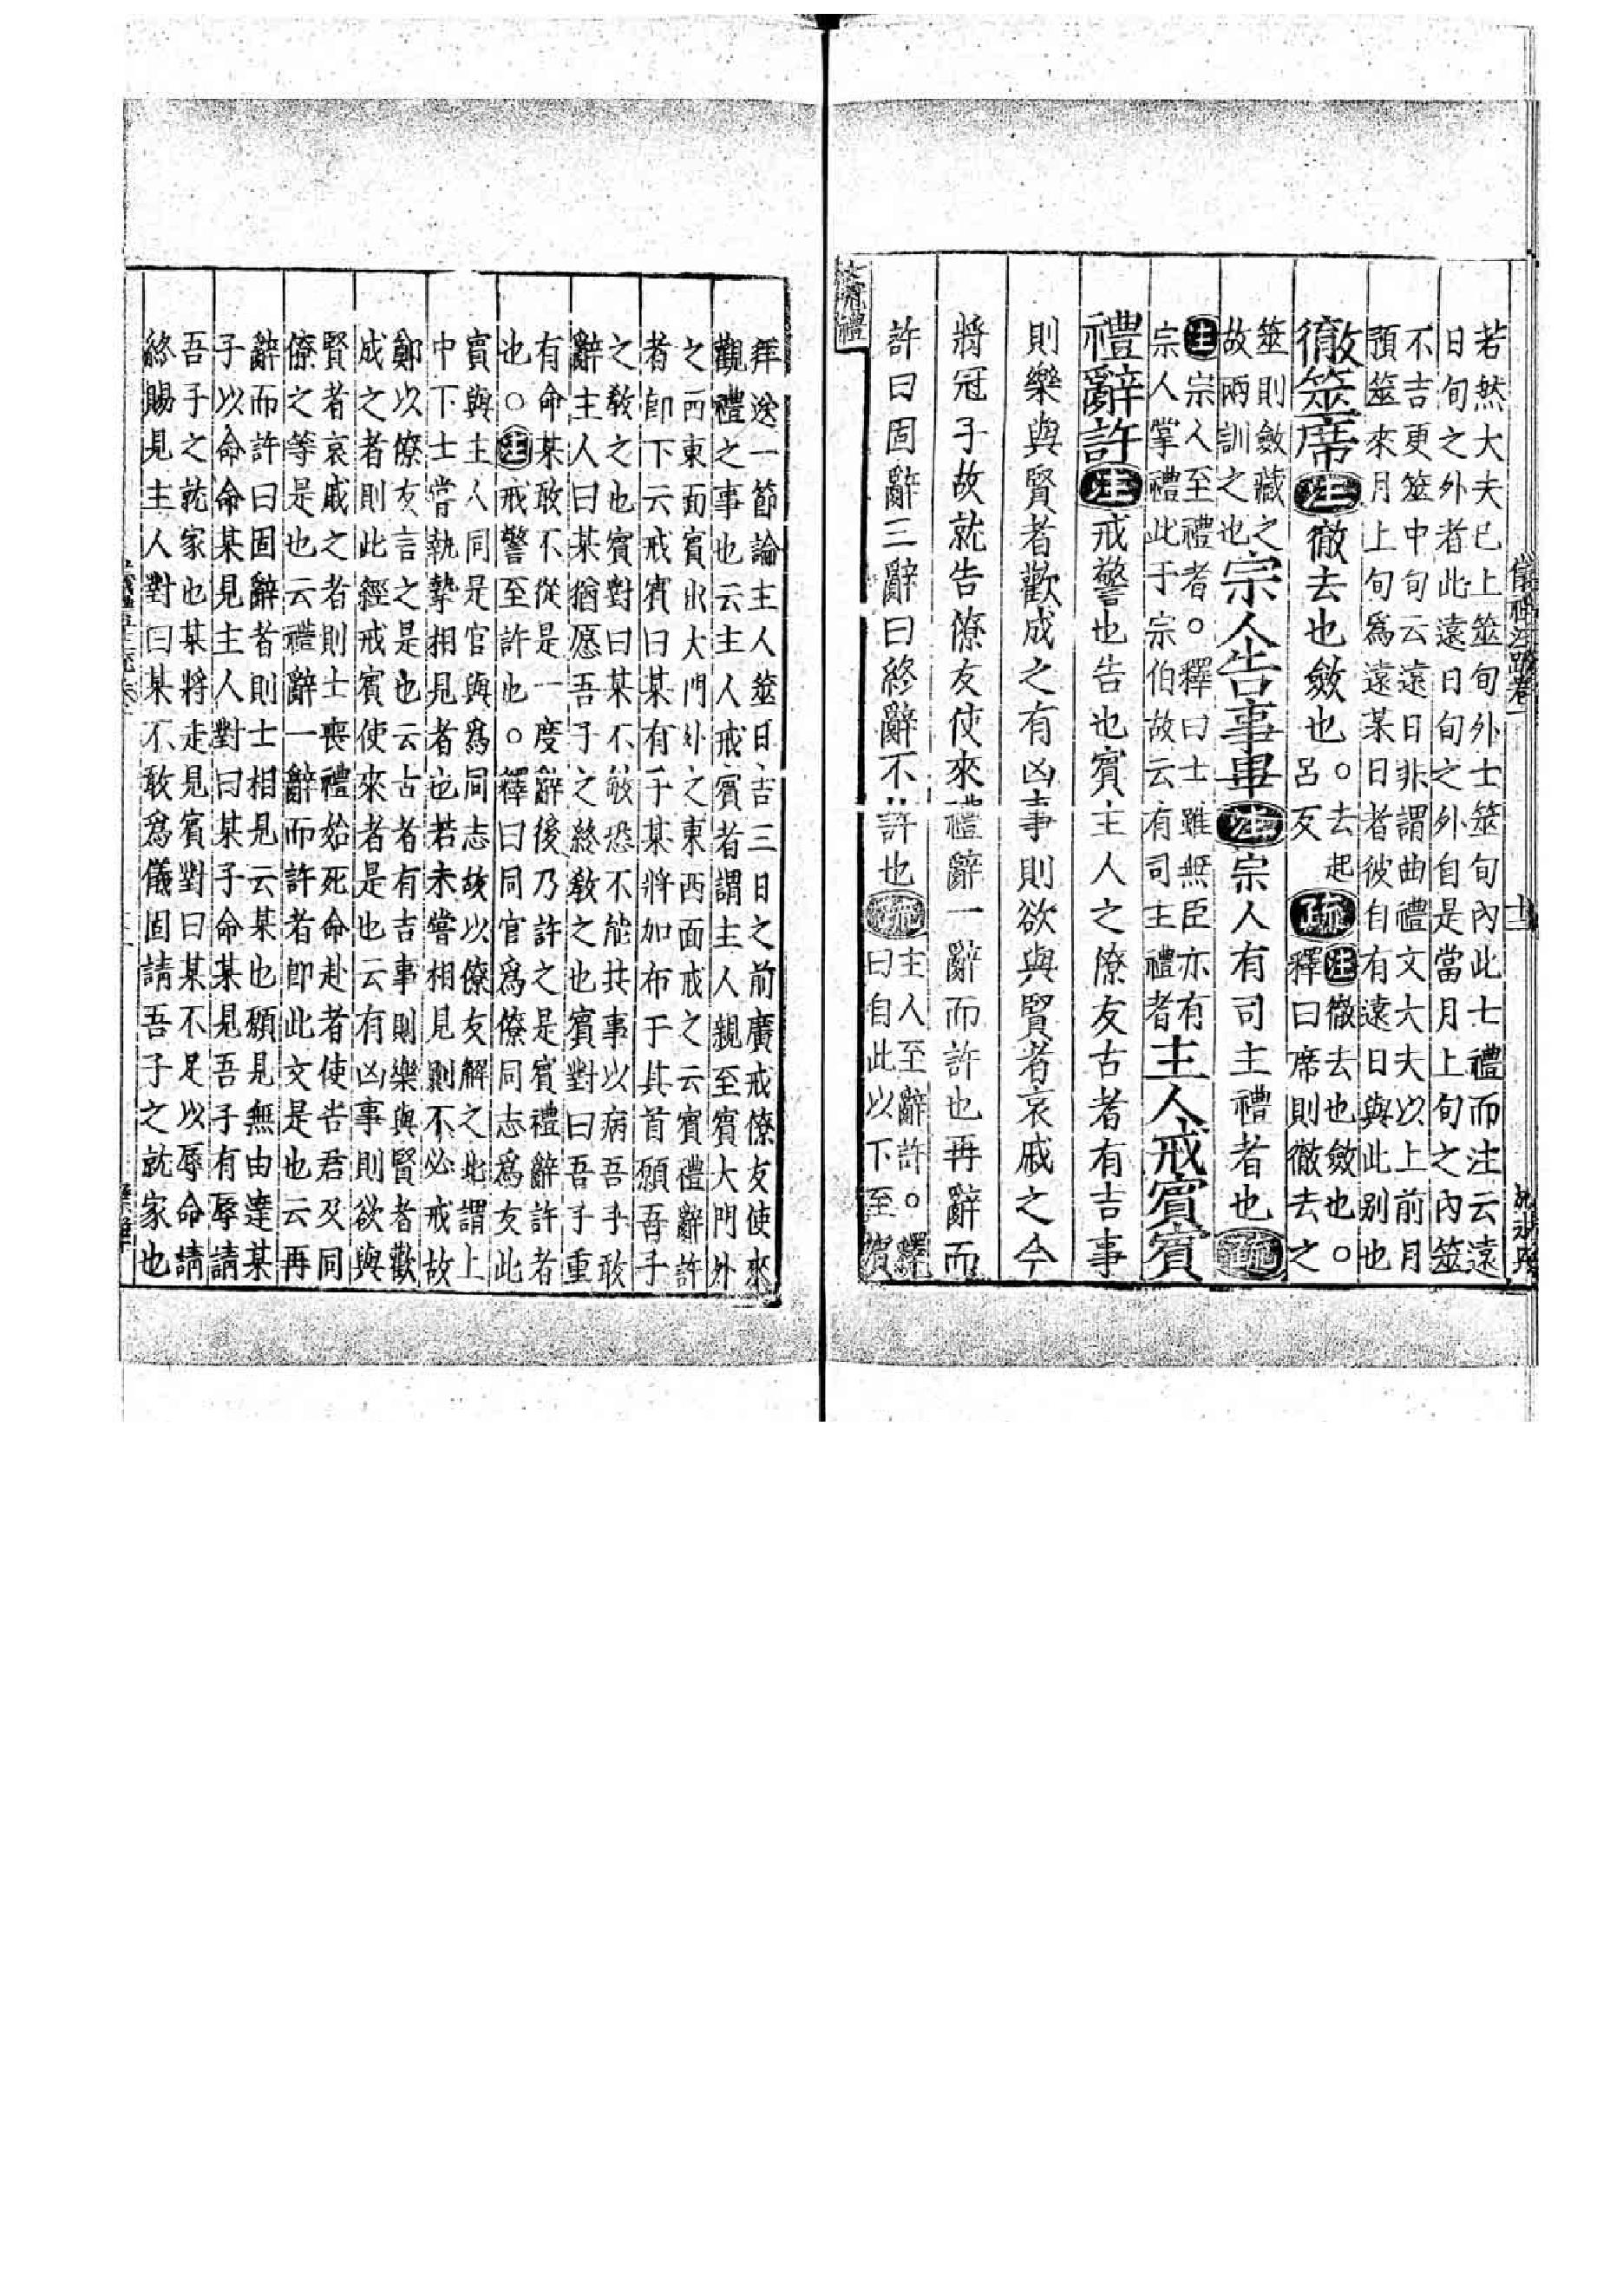 若然大夫已上筮旬外士筮旬內此士禮而注云遠
日旬之外者此遠日旬之外自是當月上旬之內筮
不吉更筮中旬云遠日非謂曲禮文大夫以上前月
預筮來月上旬爲遠某日者彼自有遠日與此别也
徹筮席注徹去也斂也○去起呂反疏注徹去也斂也○釋曰席則徹去之
筮則斂藏之故兩訓之也宗人告事畢注宗人有司主禮者也疏
注宗人至禮者○釋曰士雖無臣亦有宗人掌禮此于宗伯故云有司主禮者主人戒賓賓
禮辭許注戒警也告也賓主人之僚友古者有吉事
則樂與賢者歡成之有凶事則欲與賢者哀戚之今
將冠子故就告僚友使來禮辭一辭而許也再辭而
許曰固辭三辭曰終辭不許也疏主人至辭許○釋曰自此以下至賓
士冠禮
拜送一節論主人筮日吉三日之前廣戒僚友使來
觀禮之事也云主人戒賓者謂主人親至賓大門外
之西東面賓出大門外之東西面戒之云賓禮辭許
者卽下云戒賓曰某有子某將加布于其首願吾子
之敎之也賓對曰某不敏恐不能共事以病吾子敢
辭主人曰某猶愿吾子之終敎之也賓對曰吾子重
有命某敢不從是一度辭後乃許之是賓禮辭許者
也○注戒警至許也○釋曰同官爲僚同志爲友此
賓與主人同是官與爲同志故以僚友解之此謂上
中下士嘗執摯相見者也若未嘗相見則不必戒故
鄭以僚友言之是也云古者有吉事則樂與賢者歡
成之者則此經戒賓使來者是也云有凶事則欲與
賢者哀戚之者則士喪禮始死命赴者使告君及同
僚之等是也云禮辭一辭而許者卽此文是也云再
辭而許曰固辭者則士相見云某也願見無由達某
子以命命某見主人對曰某子命某見吾子有辱請
吾子之就家也某將走見賓對曰某不足以辱命請
終賜見主人對曰某不敢爲儀固請吾子之就家也